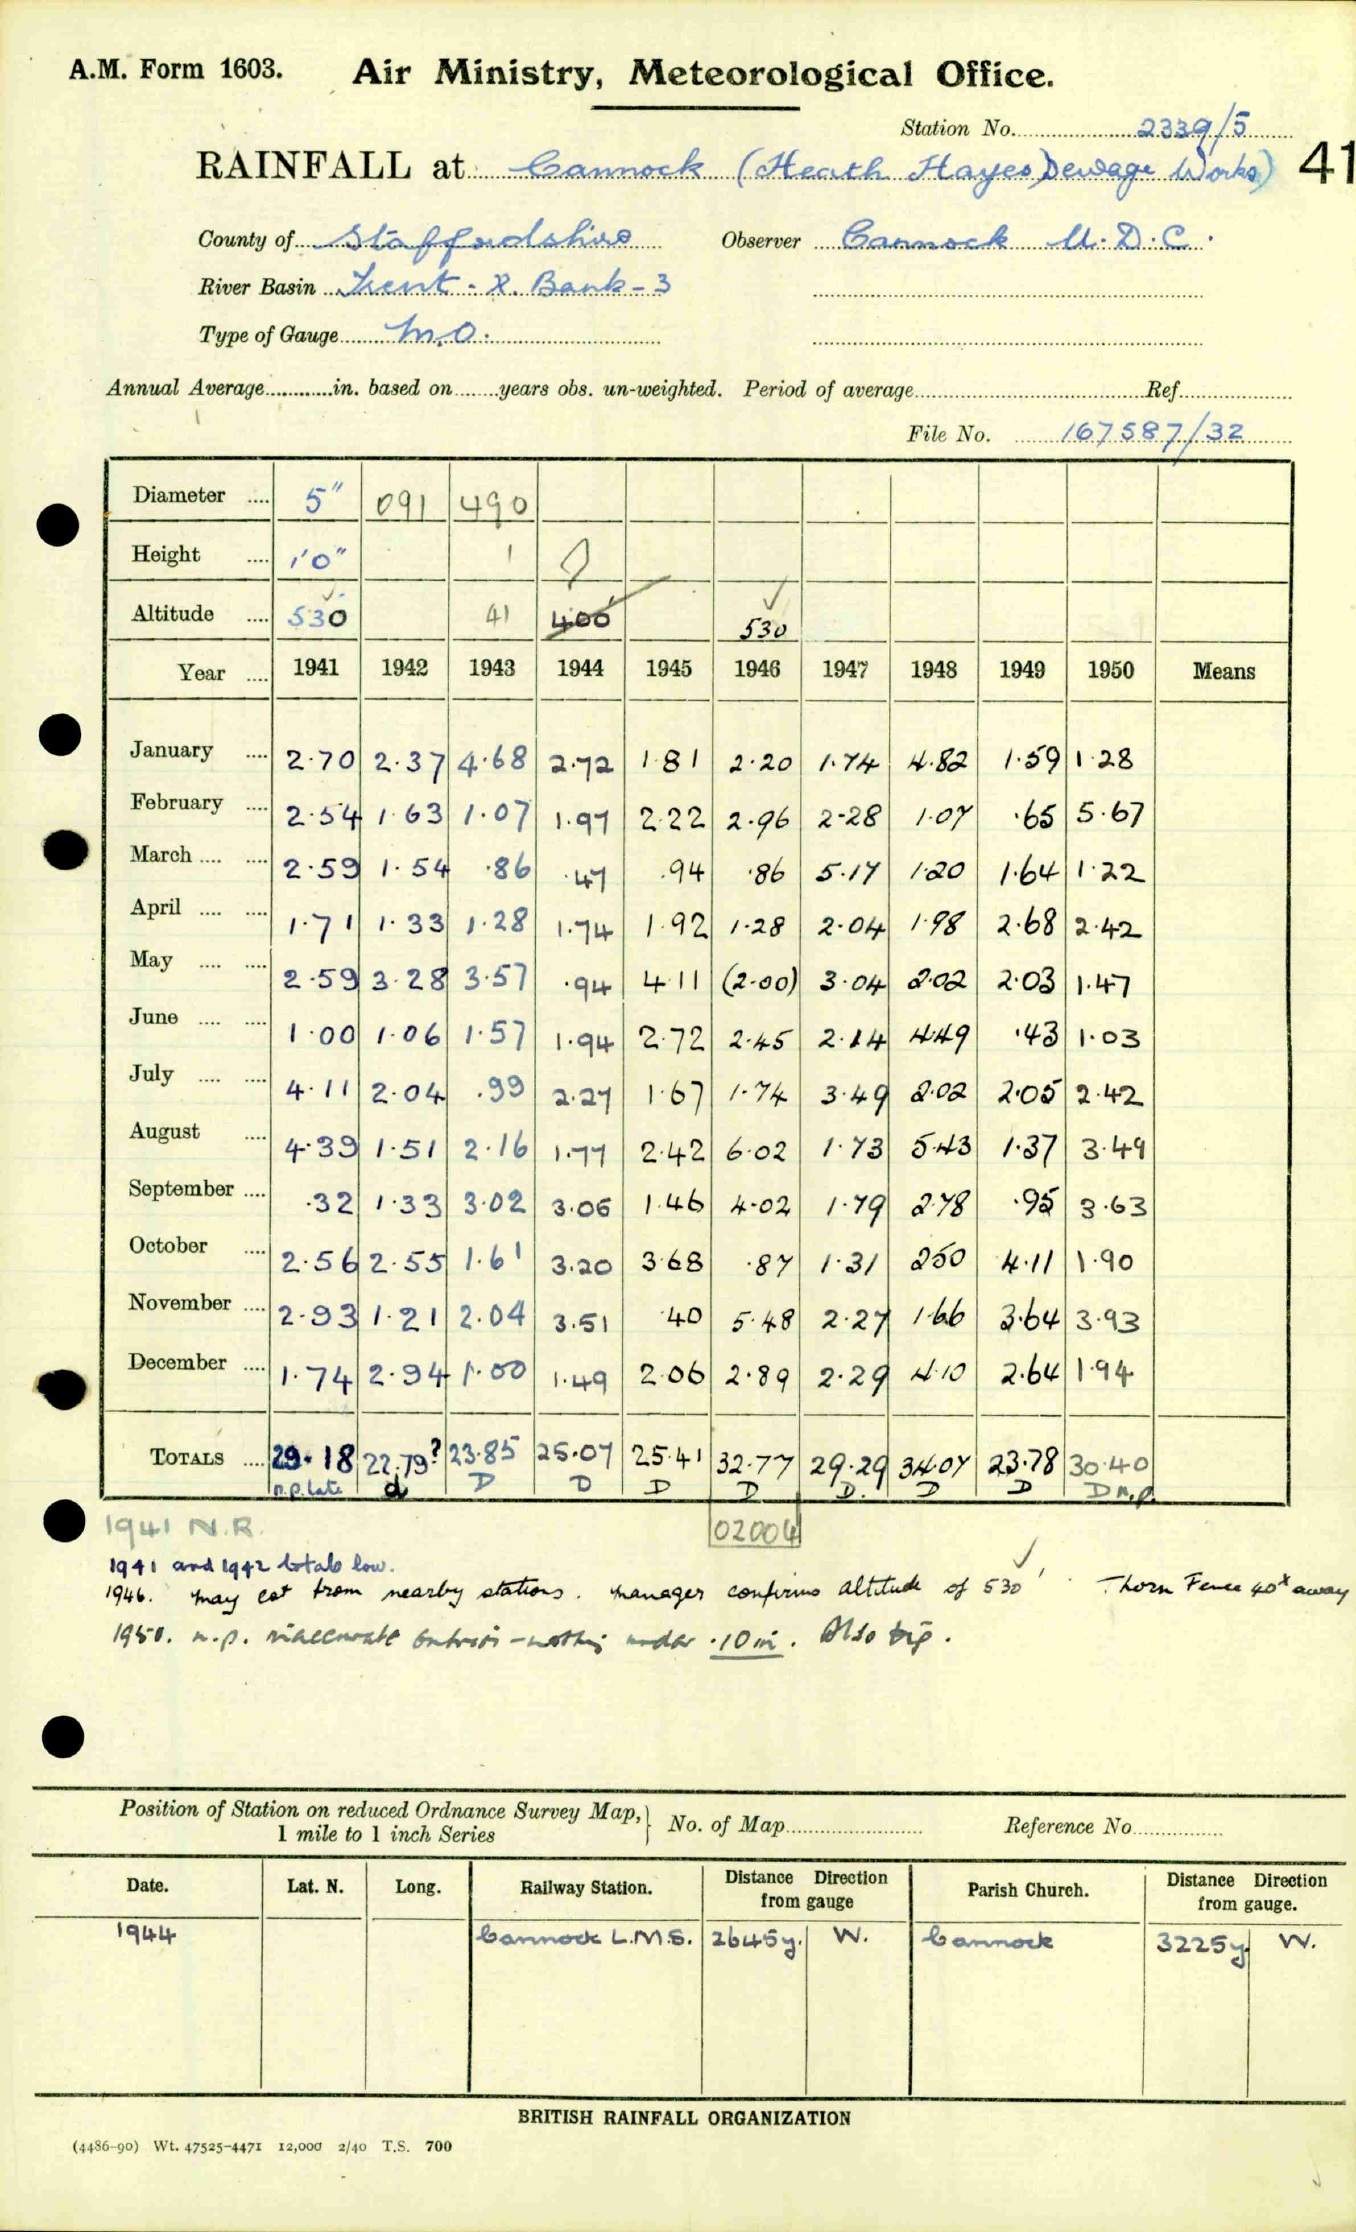 A.M. Form 1603. Air Ministry, Meteorological Office.
Station No. 2339/5
RAINFALL at Cannock (Heath Hayes) Sewage Works) 41
County of Staffordshire Observer Cannock U.D.C.
River Basin Trent - R. Bank - 3
Type of Gauge M.O.
Annual Average............in. based on........years obs. un-weighted. Period of average.............Ref.............
File No. 167587/32
Diameter .... 5" 091 490
Height .... 1'0" 1 ?
Altitude .... 530 41 400 530
Year .... 1941 1942 1943 1944 1945 1946 1947 1948 1949 1950 Means
January .... 2.70 2.37 4.68 2.72 1.81 2.20 1.74 4.82 1.59 1.28
February .... 2.54 1.63 1.07 1.97 2.22 2.96 2.28 1.07 .65 5.67
March .... .... 2.59 1.54 .86 .47 .94 .86 5.17 1.20 1.64 1.22
April .... .... 1.71 1.33 1.28 1.74 1.92 1.28 2.04 1.98 2.68 2.42
May .... .... 2.59 3.28 3.57 .94 4.11 (2.00) 3.04 2.02 2.03 1.47
June .... .... 1.00 1.06 1.57 1.94 2.72 2.45 2.14 4.49 .43 1.03
July .... .... 4.11 2.04 .99 2.27 1.67 1.74 3.49 2.02 2.05 2.42
August .... 4.39 1.51 2.16 1.77 2.42 6.02 1.73 5.43 1.37 3.49
September .... .32 1.33 3.02 3.06 1.46 4.02 1.79 2.78 .95 3.63
October .... 2.56 2.55 1.61 3.20 3.68 .87 1.31 2.50 4.11 1.90
November .... 2.93 1.21 2.04 3.51 .40 5.48 2.27 1.66 3.64 3.93
December .... 1.74 2.94 1.00 1.49 2.06 2.89 2.29 4.10 2.64 1.94
TOTALS .... 29.18 22.79? 23.85 25.07 25.41 32.77 29.29 34.07 23.78 30.40
n.p. late d D D D D D. D D D n.p.
1941 N.R. 02004
1941 and 1942 totals low.
1946. May est from nearby stations. Manager confirms altitude of 530' Thorn Fence 40x away
1950. n.p. inaccurate entries - nothing under .10 in. Also trip.
Position of Station on reduced Ordnance Survey Map, 1 mile to 1 inch Series } No. of Map............ Reference No............
Date. Lat. N. Long. Railway Station. Distance Direction from gauge Parish Church. Distance Direction from gauge.
1944 Cannock L.M.S. 2645y. W. Cannock 3225y W.
BRITISH RAINFALL ORGANIZATION
(4486-90) Wt. 47525-4471 12,000 2/40 T.S. 700